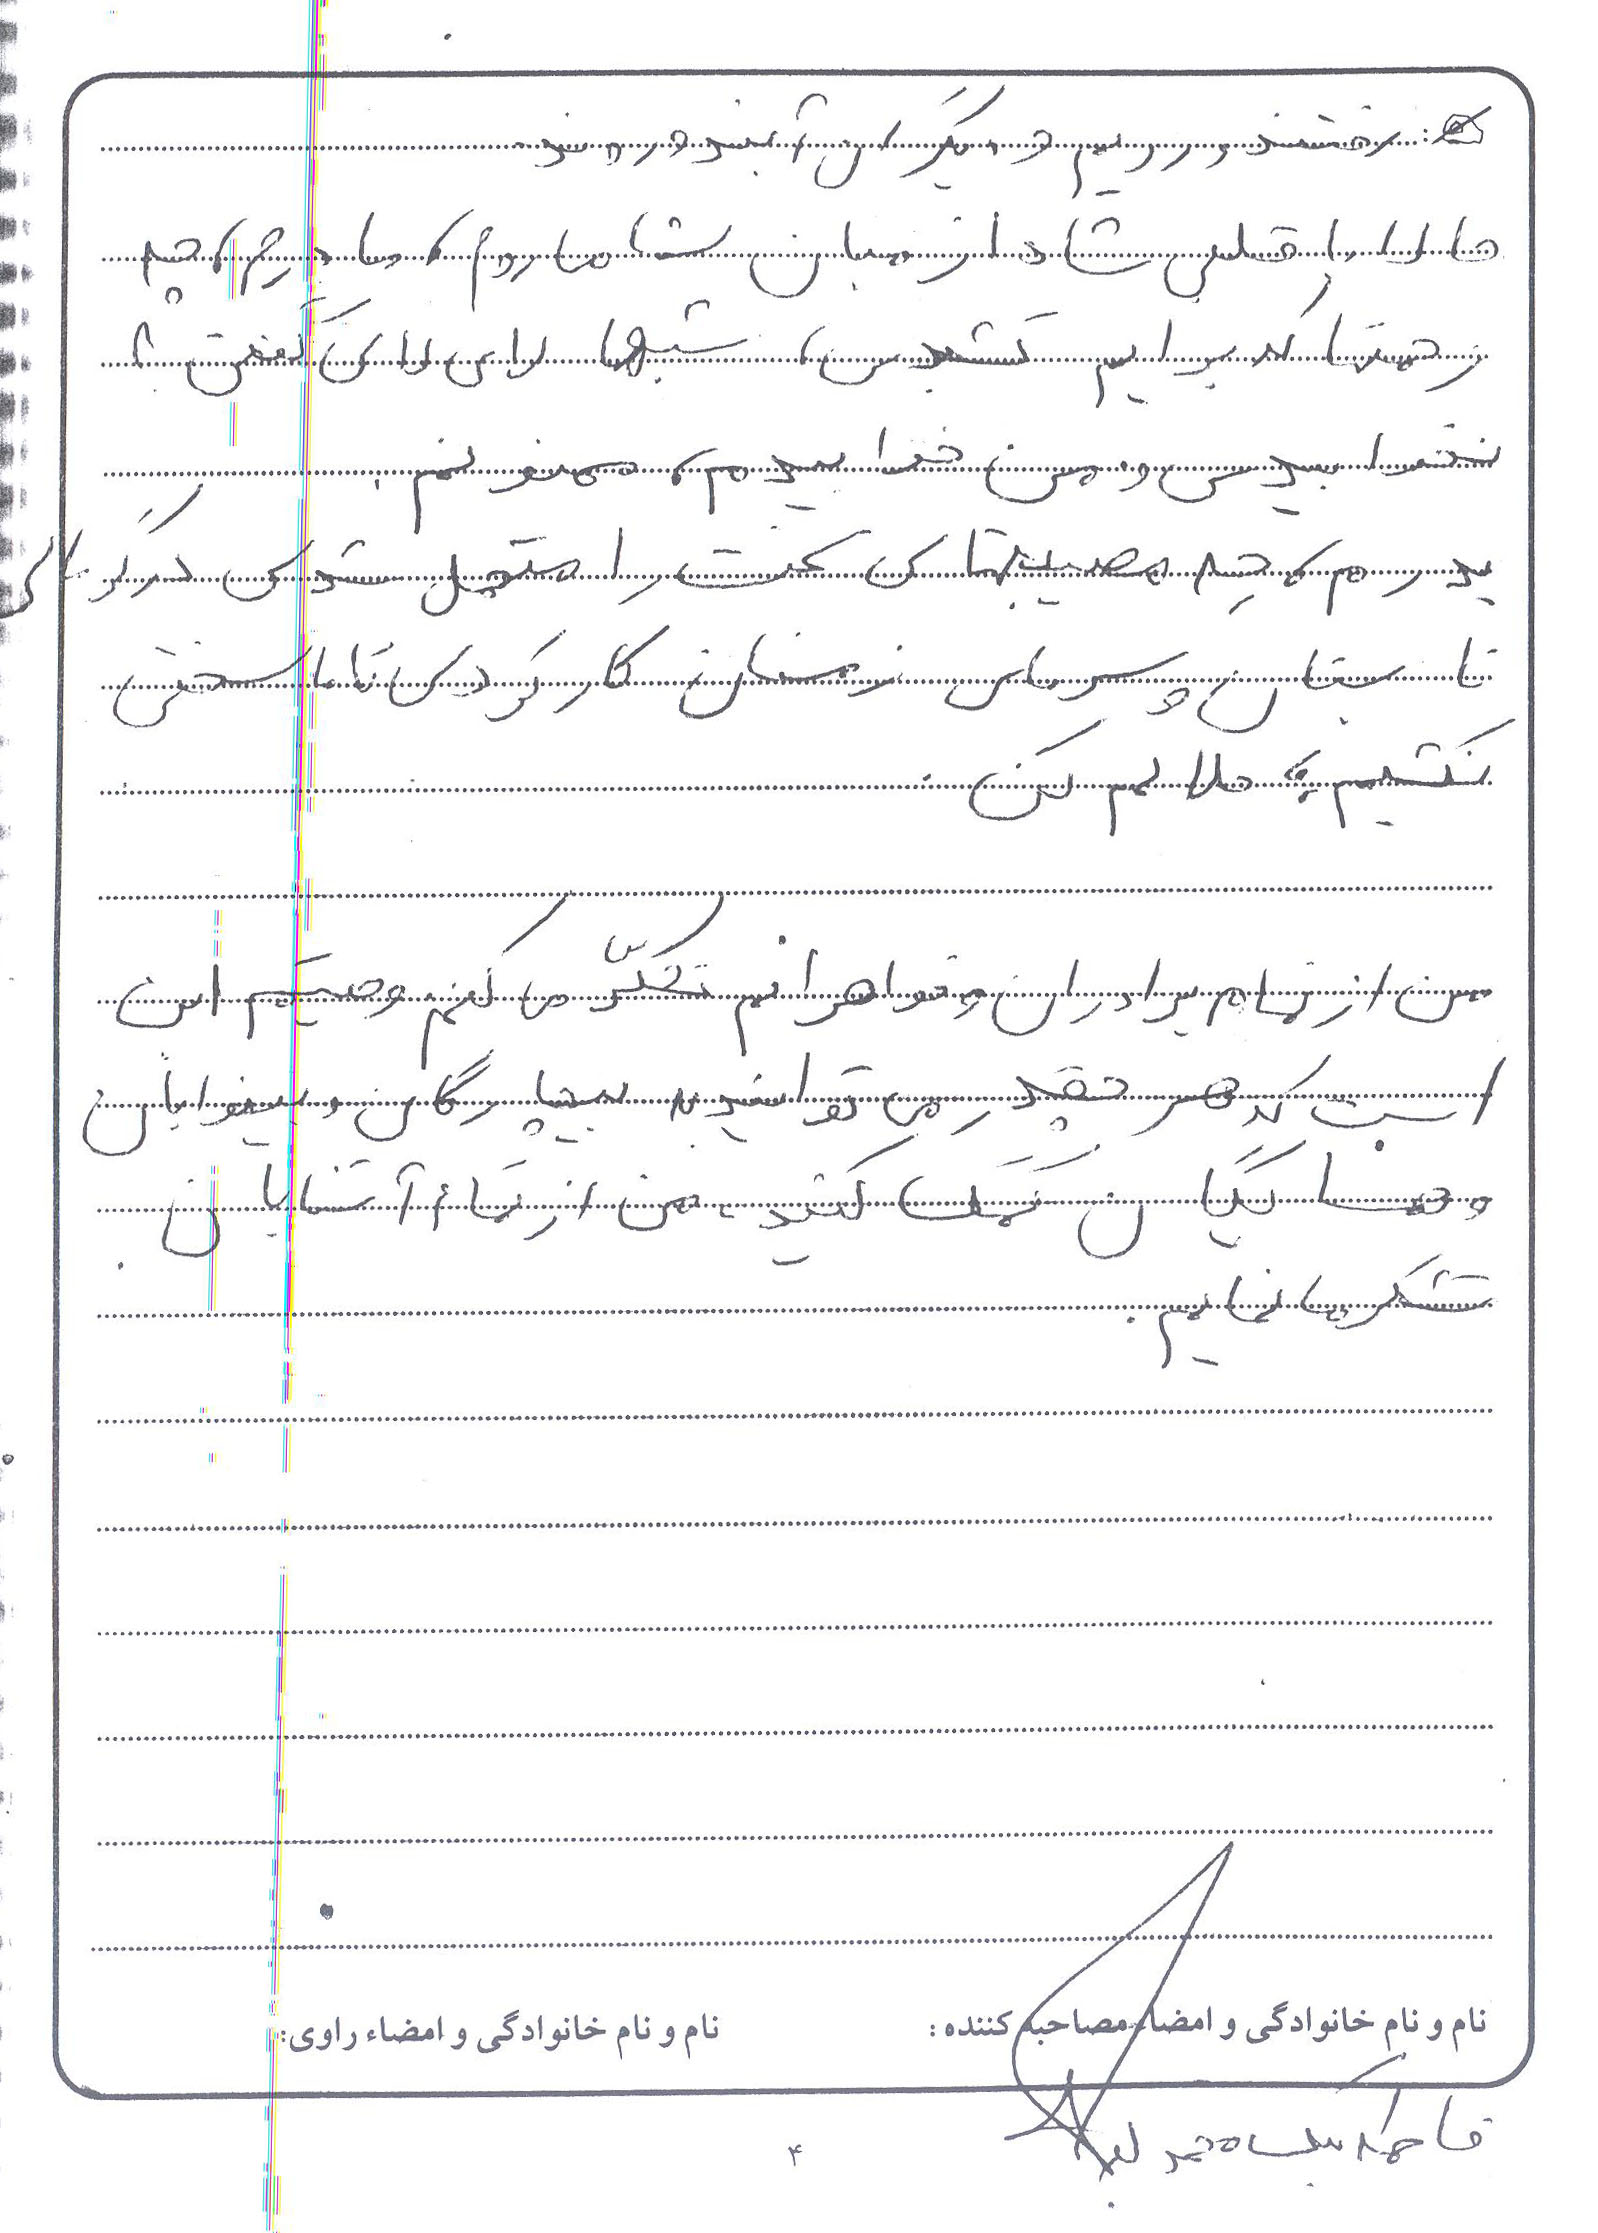 رفتند و رویم و دیگران آیند و روند.
حالا با قلبی شاد از میان شما می روم، مادرم، چه
زحمتها که برایم کشیدی، شبها لالایی گفتی
نخوابیدی و من خوابیدم، ممنونم.
پدرم، چه مصیبتهای سخت را متحمل شدی در گرمای
تابستان و سرمای زمستان کار کردی تا ما سختی
نکشیم، حلالم کن.
من از تمام برادران و خواهرانم تشکّر می کنم وصیتم این
است که هر چقدر می توانید به بیچارگان و بینوایان
و همسایگان کمک کنید، من از تمام آشنایان
تشکر می نمایم.
نام و نام خانوادگی و امضاء مصاحبه کننده:
نام و نام خانوادگی و امضاء راوی:
۴